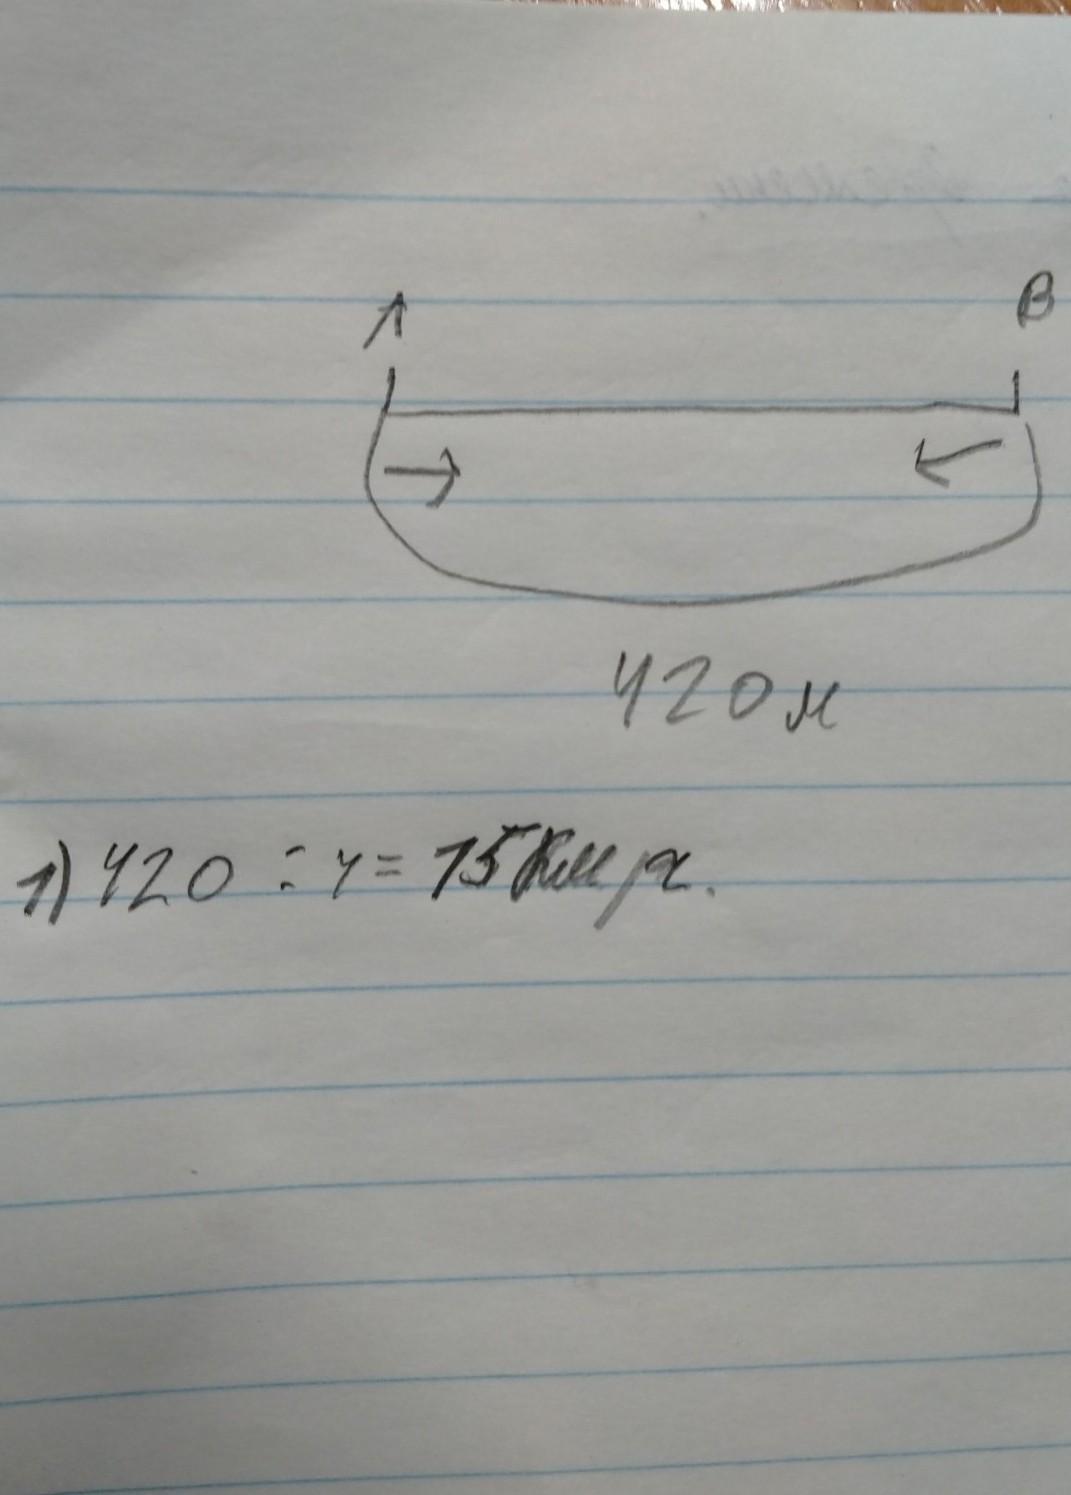 А В
420м
1) 420 : 4 = 15 км/ч.